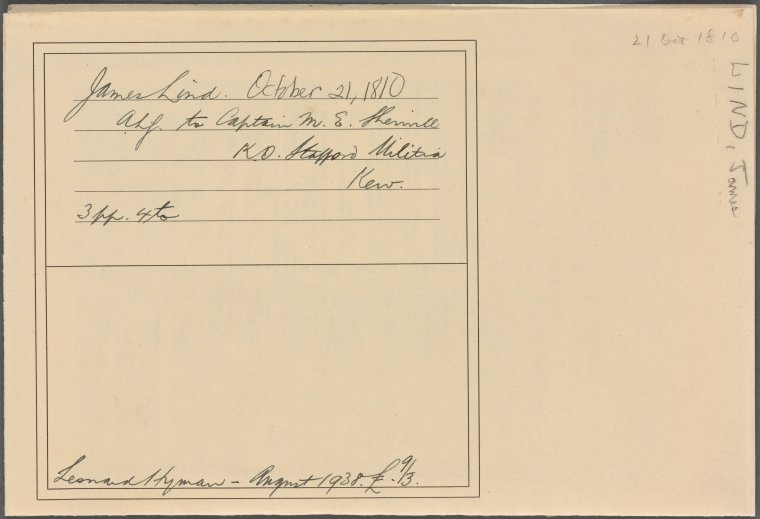 James Lind. October 21, 1810
A.L.S. to Captain M. E. Sherwill
K.O. Stafford Militia
Kew.
3 pp. 4to
Leonard Hyman – August 1938. £ . 9/3.
21 Oct 1810
LIND, James